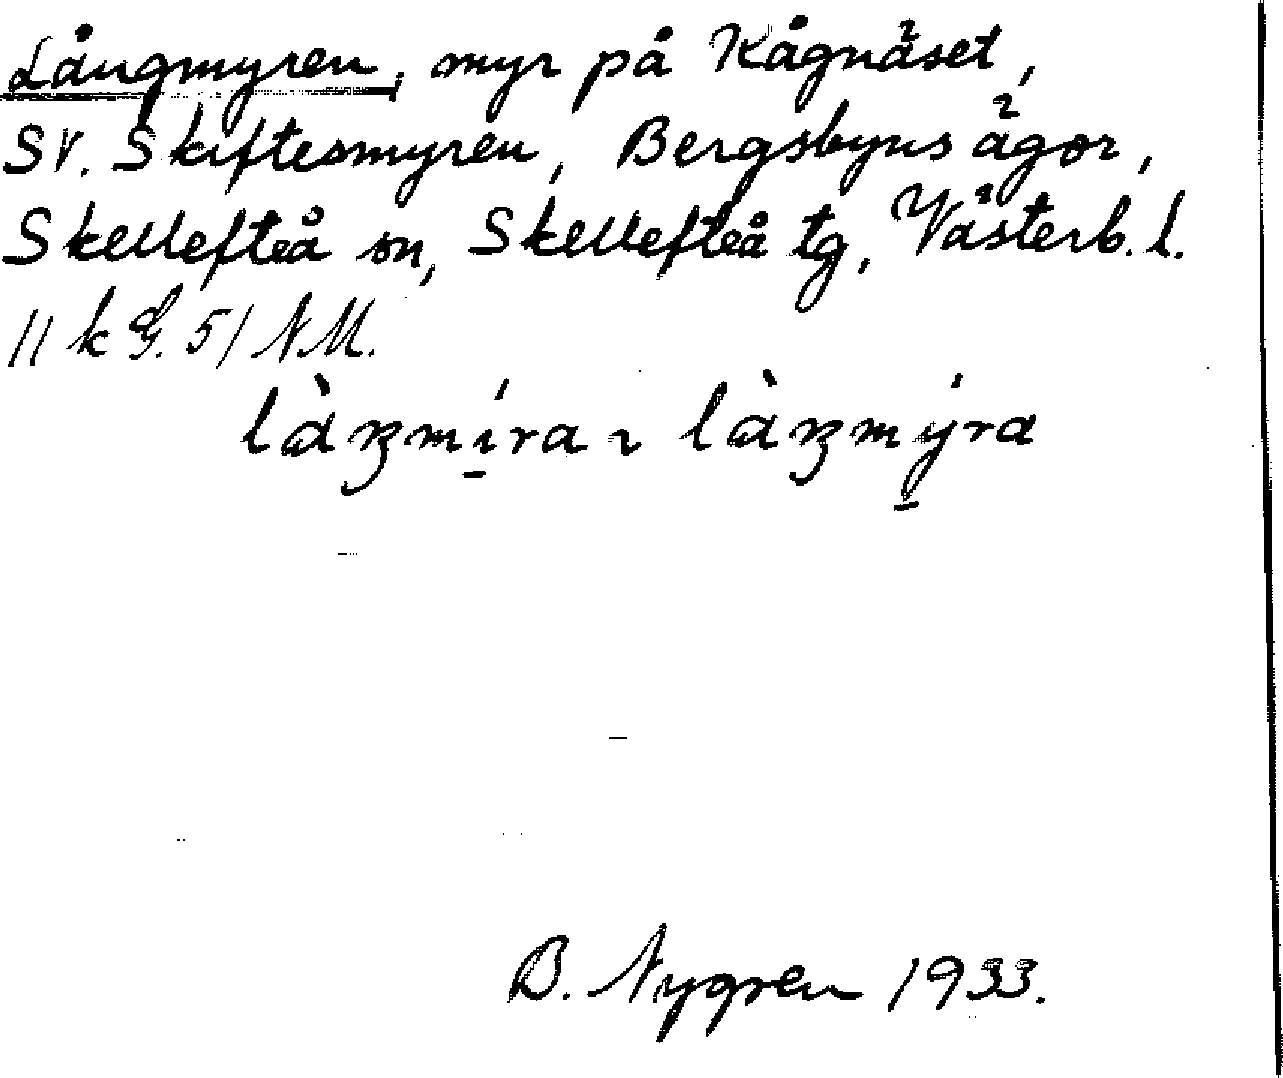 Långmyren, myr på Kågnäset,
SV. Skiftesmyren, Bergsbyns ägor,
Skellefteå sn, Skellefteå tg, Västerb. l.
11 k G. 51 NM.
B. Nygren 1933.